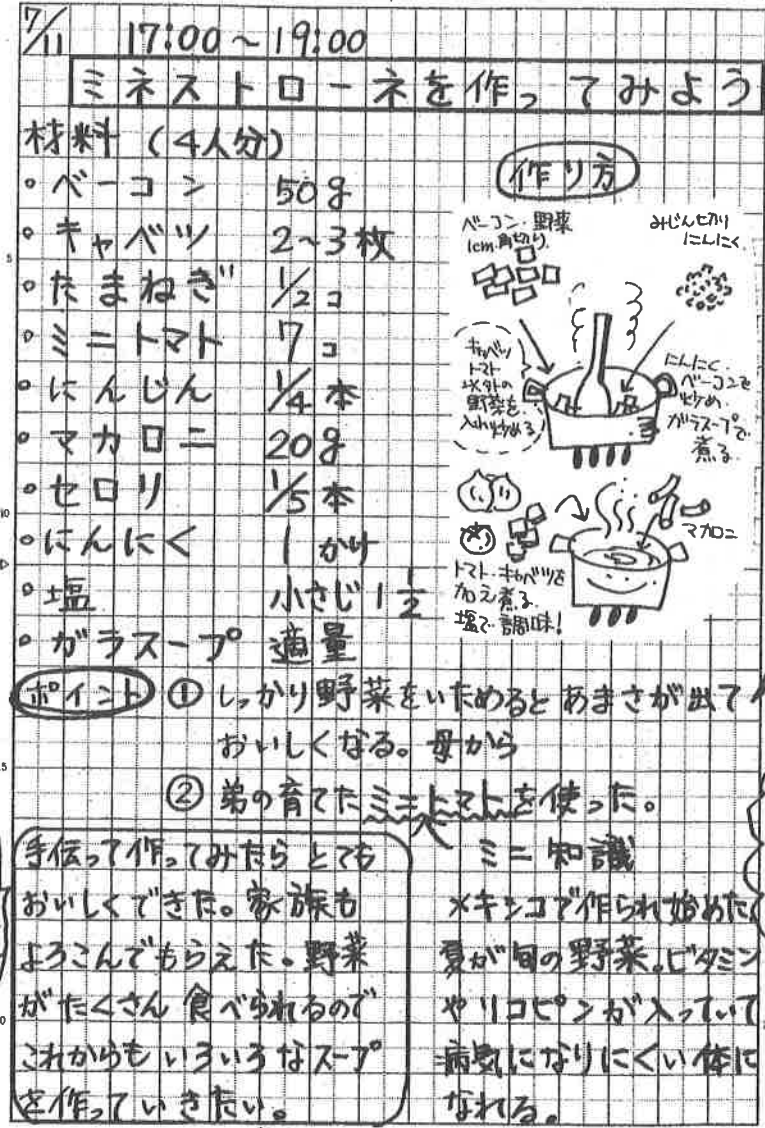 7/11 17:00~19:00
ミネストローネを作ってみよう
材料(4人分)
・ベーコン 50g
・キャベツ 2~3枚
・たまねぎ 1/2コ
・ミニトマト 7コ
・にんじん 1/4本
・マカロニ 20g
・セロリ 1/5本
・にんにく 1かけ
・塩 小さじ1 1/2
・ガラスープ 適量
作り方
ベーコン・野菜
1cm角切り
みじん切り
にんにく
キャベツ
トマト
以外の
野菜を
入れ炒める
にんにく
ベーコンを
炒め
ガラスープで
煮る
マカロニ
トマト・キャベツを
加え煮る
塩で調味!
ポイント ①しっかり野菜をいためるとあまさが出て
おいしくなる。母から
②弟の育てたミニトマトを使った。
手伝って作ってみたらとても
おいしくできた。家族も
よろこんでもらえた。野菜
がたくさん食べられるので
これからもいろいろなスープ
を作っていきたい。
ミニ知識
メキシコで作られ始めた
夏が旬の野菜。ビタミン
やリコピンが入っていて
病気になりにくい体に
なれる。